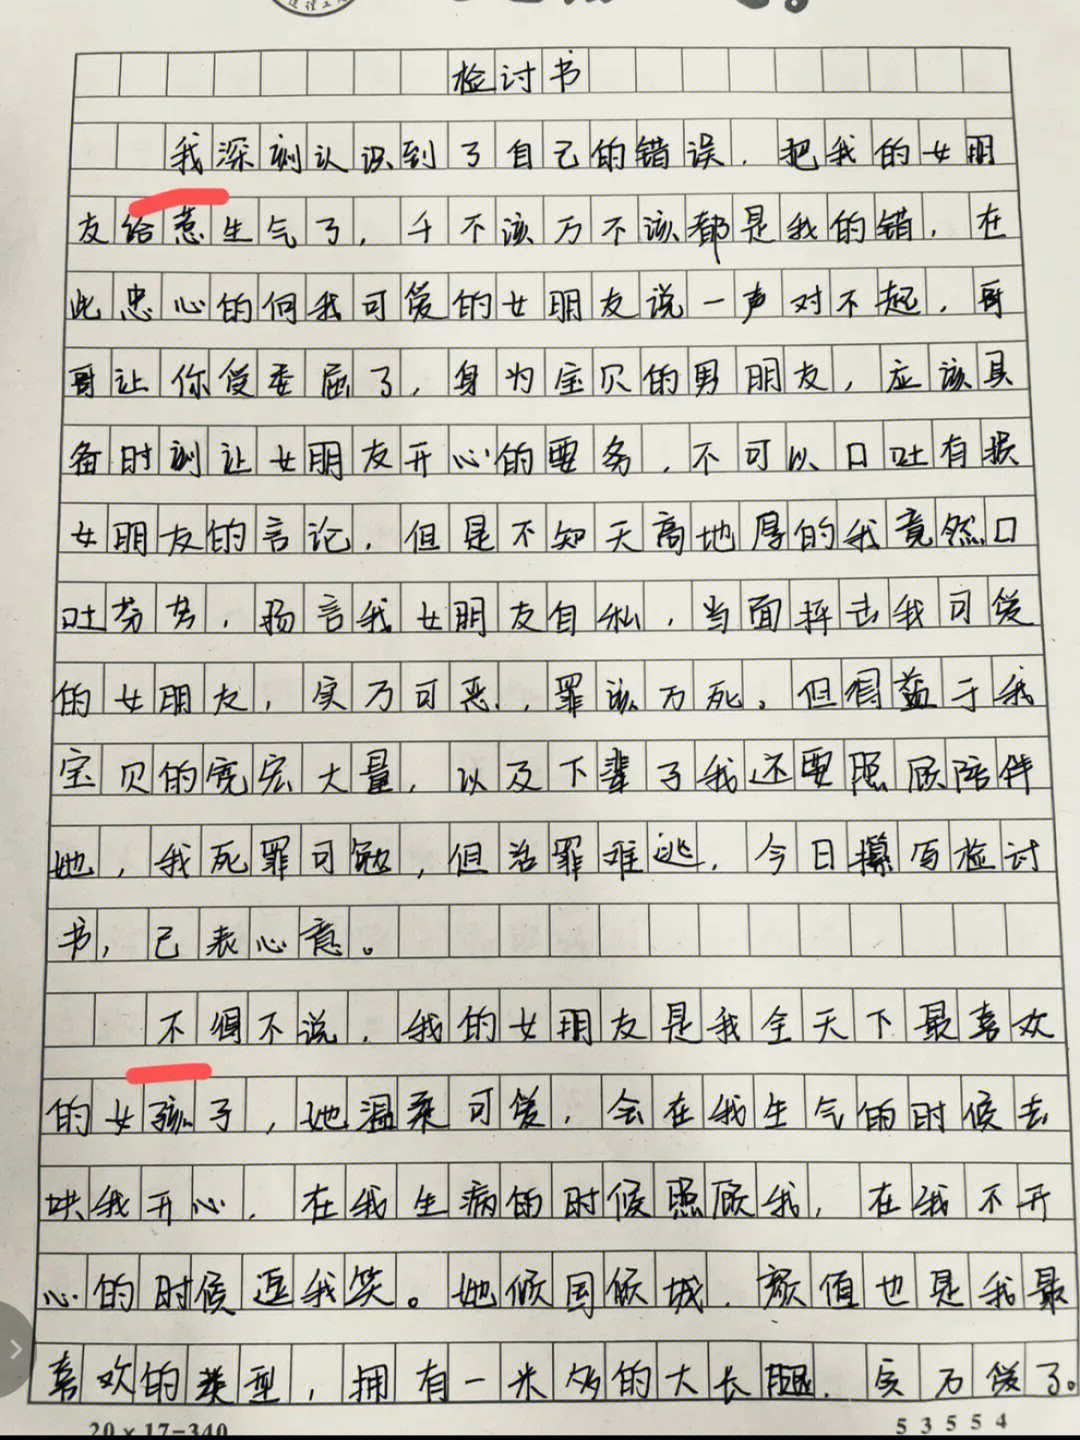 检讨书
我深刻认识到了自己的错误，把我的女朋
友给惹生气了，千不该万不该都是我的错，在
此忠心的向我可爱的女朋友说一声对不起，哥
哥让你受委屈了，身为宝贝的男朋友，应该具
备时刻让女朋友开心的要务，不可以口吐有损
女朋友的言论，但是不知天高地厚的我竟然口
吐芬芳，扬言我女朋友自私，当面抨击我可爱
的女朋友，实乃可恶，罪该万死。但得益于我
宝贝的宽宏大量，以及下辈子我还要照顾陪伴
她，我死罪可勉，但活罪难逃，今日撰写检讨
书，已表心意。
不得不说，我的女朋友是我全天下最喜欢
的女孩子，她温柔可爱，会在我生气的时候去
哄我开心，在我生病的时候照顾我，在我不开
心的时候逗我笑。她倾国倾城，颜值也是我最
喜欢的类型，拥有一米多的大长腿，实乃爱了。
20×17=340
53554